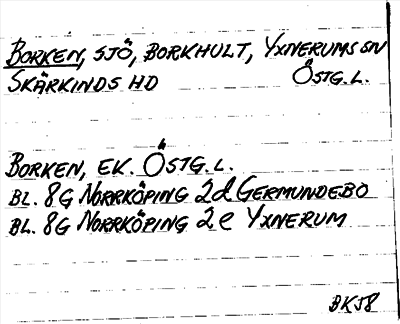 BORKEN, SJÖ, BORKHULT, YXNERUMS SN
SKÄRKINDS HD ÖSTG. L.
BORKEN, EK. ÖSTG. L.
BL. 8G NORRKÖPING 2d GERMUNDEBO
BL. 8G NORRKÖPING 2e YXNERUM
BK58